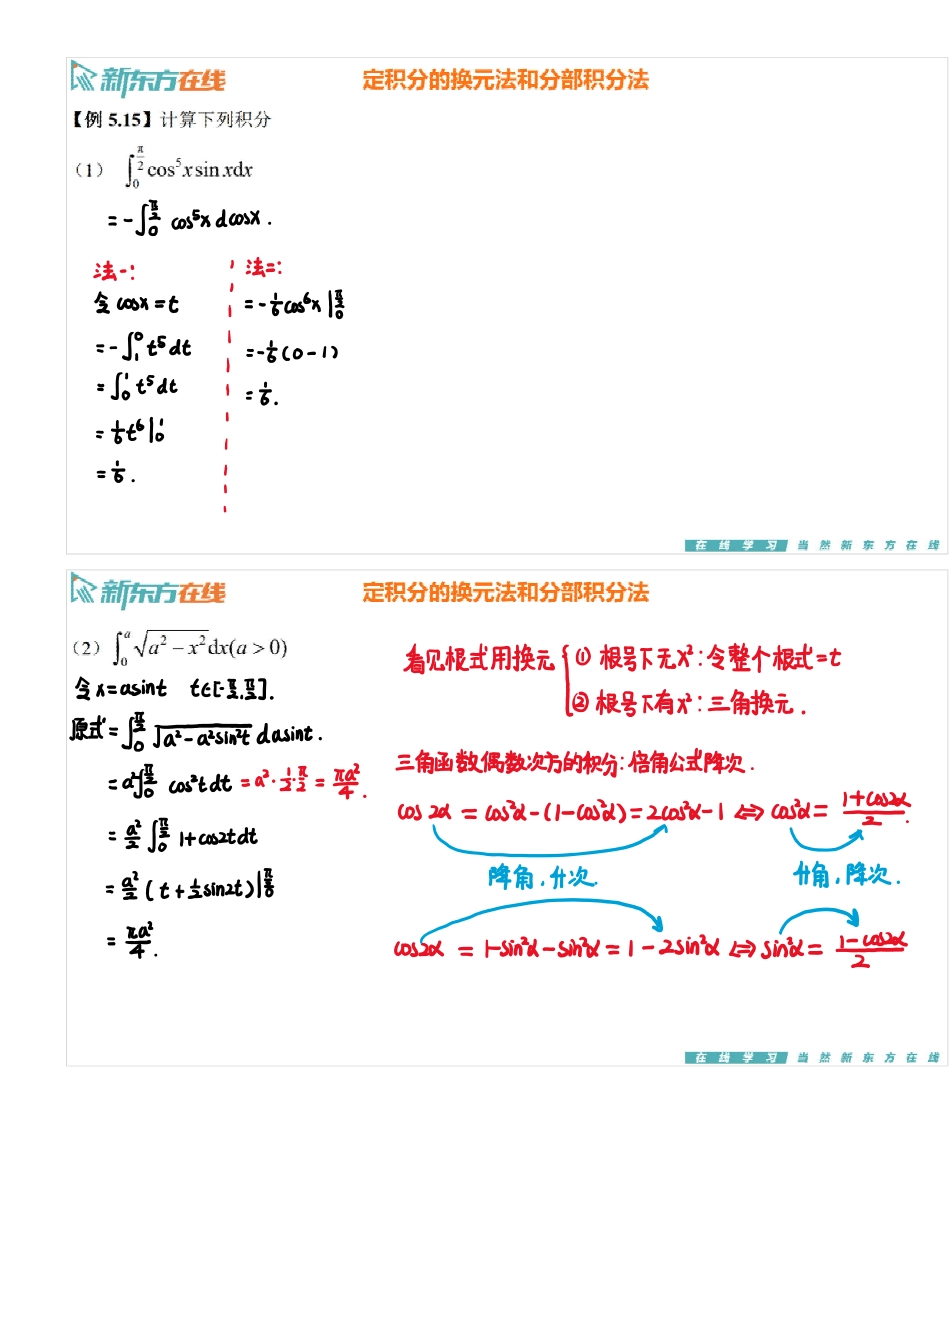 新东方在线
定积分的换元法和分部积分法
【例 5.15】计算下列积分
（1） ∫₀^{π/2} cos⁵x sin xdx
= -∫₀^{π/2} cos⁵x dcosx.
法一:
令 cosx = t
= -∫₁⁰ t⁵dt
= ∫₀¹ t⁵dt
= 1/6 t⁶|₀¹
= 1/6.
法二:
= -1/6 cos⁶x |₀^{π/2}
= -1/6 (0-1)
= 1/6.
在线学习 当然新东方在线
新东方在线
定积分的换元法和分部积分法
（2） ∫₀^a √(a² - x²) dx(a > 0)
令 x = asint t∈[-π/2, π/2].
原式 = ∫₀^{π/2} √(a²-a²sin²t) dasint.
= a²∫₀^{π/2} cos²t dt = a²·1/2·π/2 = πa²/4.
= a²/2 ∫₀^{π/2} 1+cos2tdt
= a²/2 (t+1/2 sin2t)|₀^{π/2}
= πa²/4.
看见根式用换元 { ① 根号下无x²:令整个根式=t
② 根号下有x²:三角换元.
三角函数偶数次方的积分:倍角公式降次.
cos2α = cos²α-(1-cos²α) = 2cos²α-1 ⇔ cos²α = (1+cos2α)/2.
降角,升次.
升角,降次.
cos2α = 1-sin²α-sin²α = 1-2sin²α ⇔ sin²α = (1-cos2α)/2
在线学习 当然新东方在线